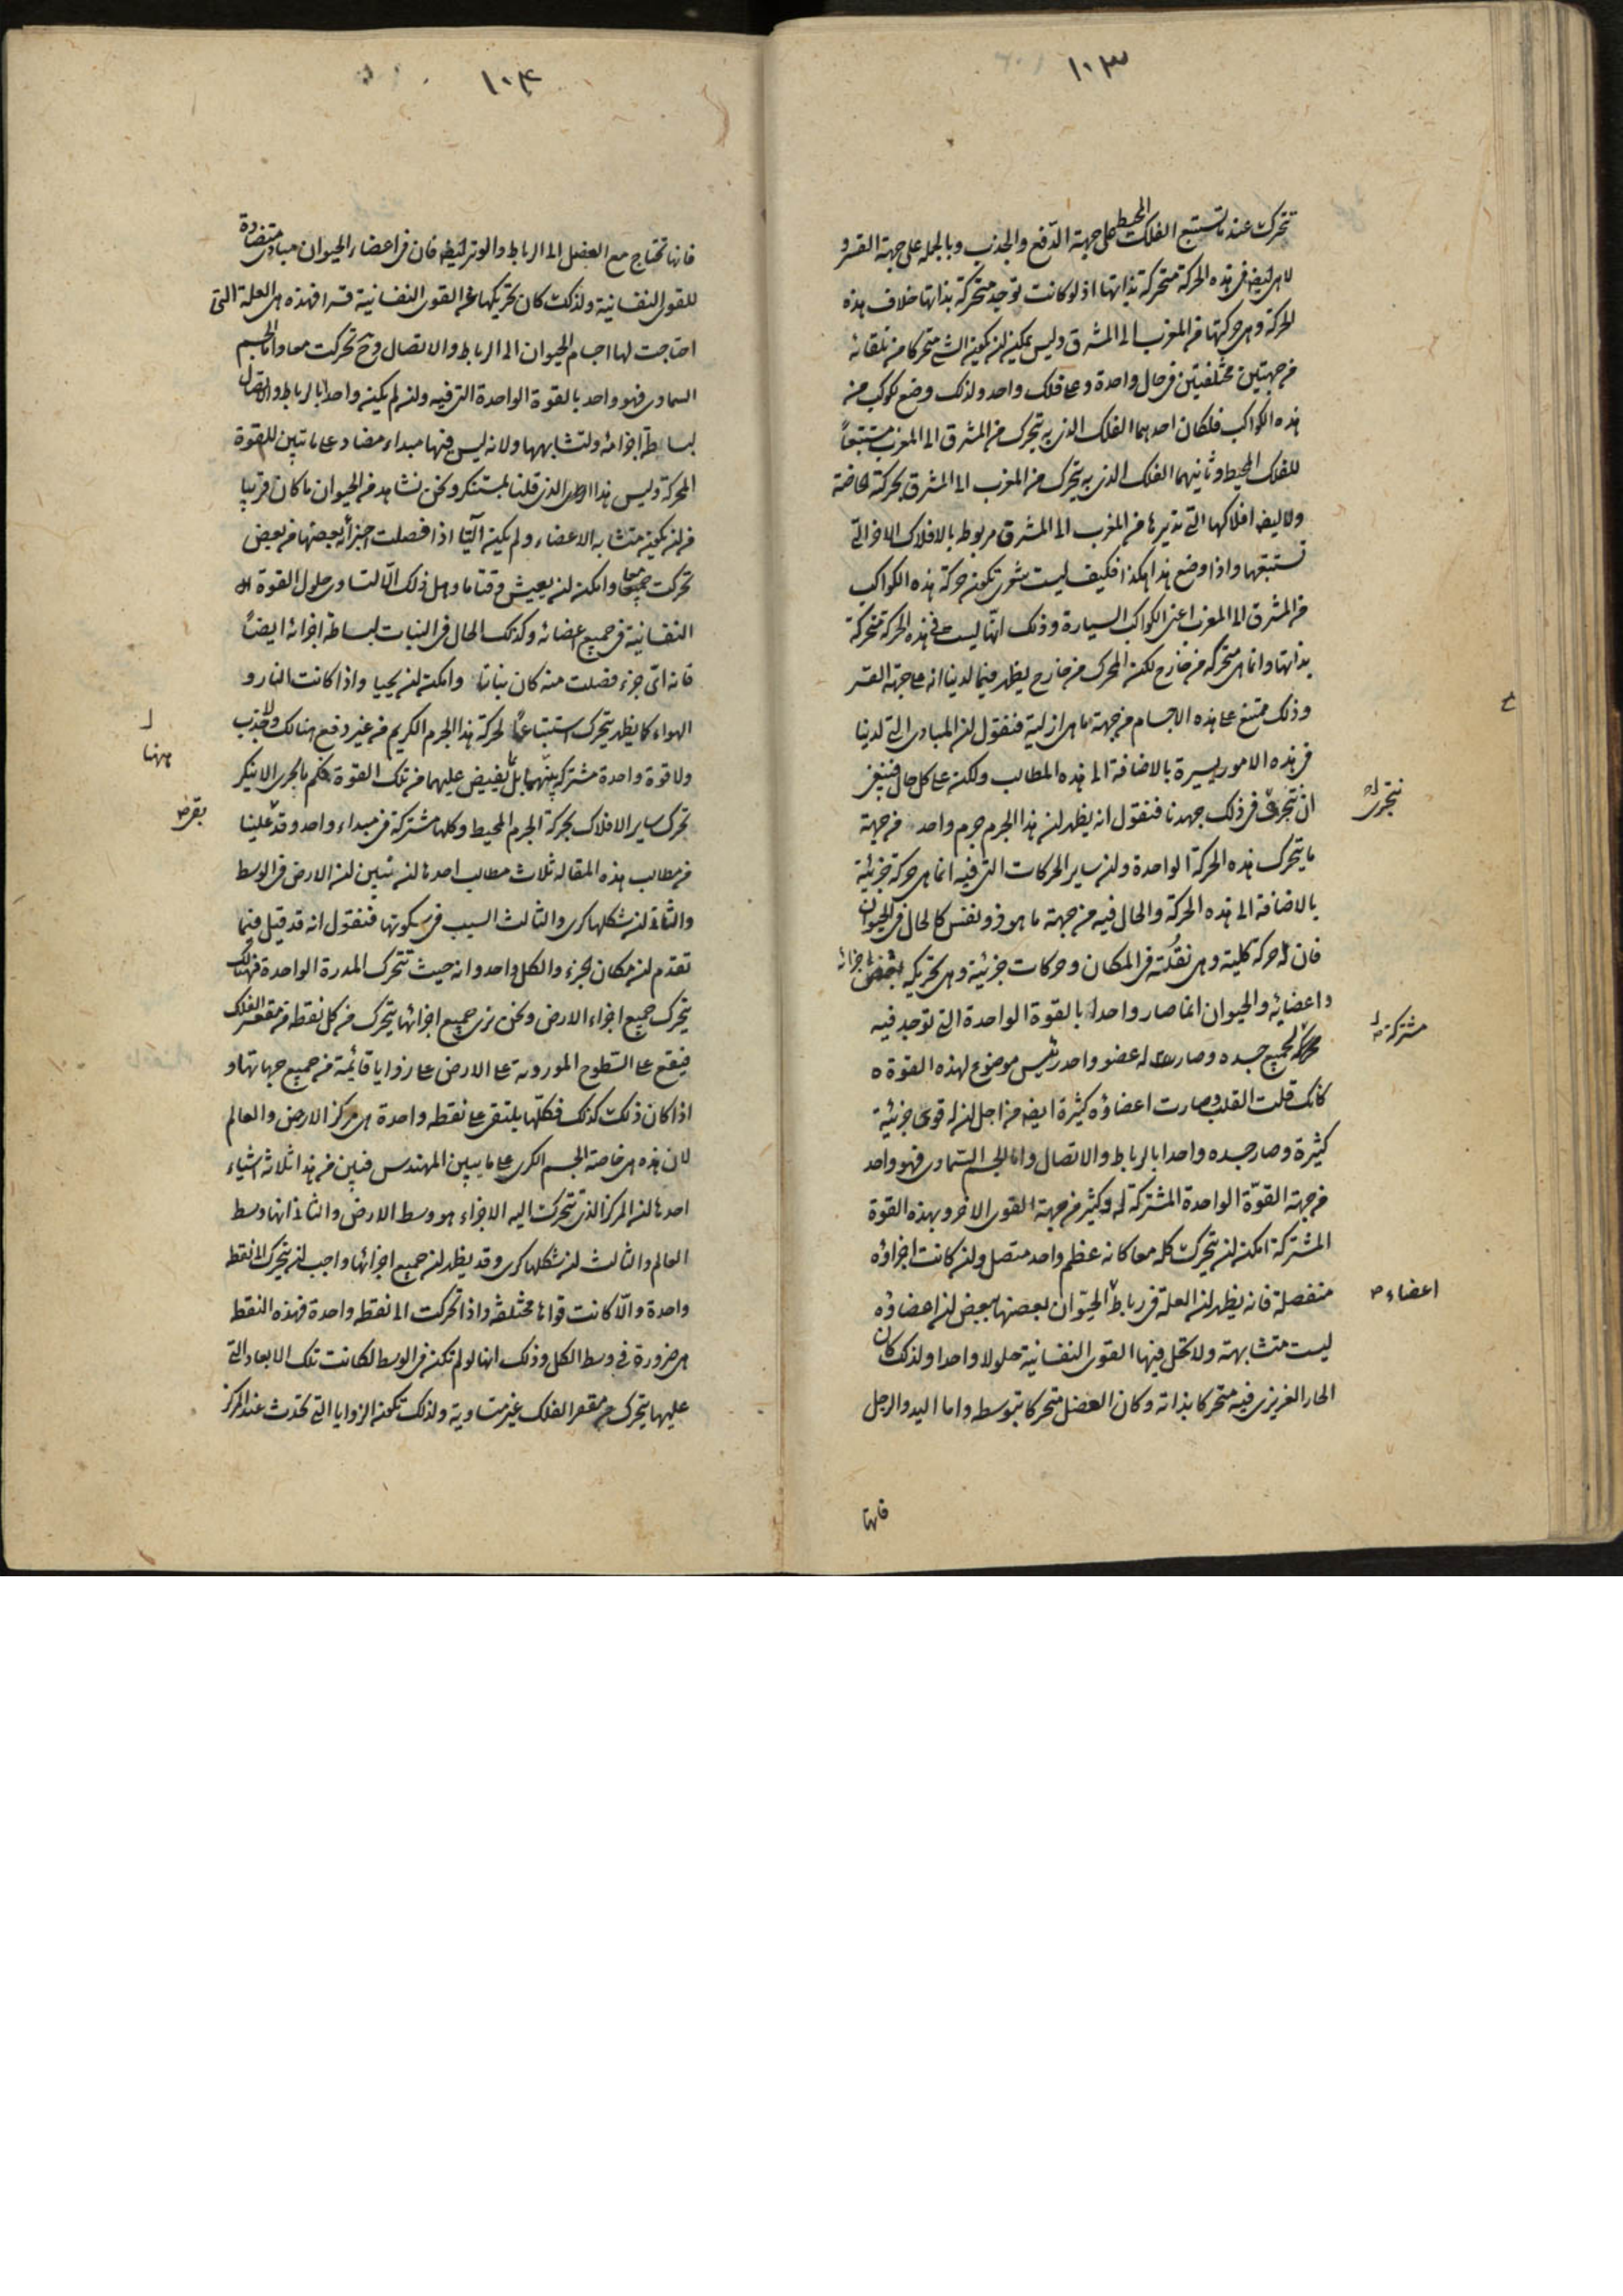 ١٠٣
تتحرك عندما تستتبع الفلك المحيط على جهة الدفع والجذب وبالجملة على جهة القسر و
لا هى ايض فى هذه الحركة متحركة بذاتها اذ لو كانت توجد متحركة بذاتها خلاف هذه
الحركة وهى حركتها من المغرب الى المشرق وليس يمكن ان يكون الشئ متحركا من تلقائه
من جهتين مختلفتين فى حال واحدة وعلى فلك واحد ولذلك وضع لكوكب من
هذه الكواكب فلكان احدهما الفلك الذى به يتحرك من المشرق الى المغرب مستتبعاً
للفلك المحيط وثانيهما الفلك الذى به يتحرك من المغرب الى المشرق بحركته الخاصة
ولا ايض افلاكها التى تديرها من المغرب الى المشرق مربوط بالافلاك الاخر التى
تستتبعها واذا وضع هذا هكذا فكيف ليت شعرى تكون حركة هذه الكواكب
من المشرق الى المغرب اعنى الكواكب السيارة وذلك انها ليست فى هذه الحركة متحركة
بذاتها وانما هى متحركة من خارج لكن المحرك من خارج يظهر فيما لدينا انه على جهة القسر
وذلك ممتنع على هذه الاجسام من جهة ما هى ازلية فنقول ان المبادى التى لدينا
فى هذه الامور يسيرة بالاضافة الى هذه المطالب ولكن على كل حال فينبغى
ان نتحرى فى ذلك جهدنا فنقول انه يظهر ان هذا الجرم جرم واحد من جهة
نتحرى
ما يتحرك هذه الحركة الواحدة وان ساير الحركات التى فيه انما هى حركة جزئية
بالاضافة الى هذه الحركة والحال فيه من جهة ما هو ذو نفس كالحال فى الحيوان
فان له حركة كلية وهى نقلته فى المكان وحركات جزئية وهى تحريكه بعض اجزائه
واعضائه والحيوان انما صار واحدا بالقوة الواحدة التى توجد فيه
مشتركة
لجميع جسده وصارت له عضو واحد رئيس موضوع لهذه القوة
كانك قلت القلب وصارت اعضاؤه كثيرة ايض من اجل ان له قوى جزئية
كثيرة وصار جسده واحدا بالرباط والاتصال واما الجسم السماوى فهو واحد
من جهة القوة الواحدة المشتركة له وكثير من جهة القوى الاخر وبهذه القوة
المشتركة امكن ان يتحرك كله معا كانه عظم واحد متصل وان كانت اجزاؤه
منفصلة فانه يظهر ان العلة فى رباط الحيوان بعضها ببعض ان اعضاؤه
اعضاء
ليست متشابهة ولا تحل فيها القوى النفسانية حلولا واحدا ولذلك كان
الحار الغريزى فيه متحركا بذاته وكان العضل متحركا بتوسطه واما اليد والرجل
فانها
١٠٤
فانها تحتاج مع العضل الى الرباط والوتر ايض فان فى اعضاء الحيوان مبادى متضادة
للقوى النفسانية ولذلك كان تحريكها عن القوى النفسانية قسرا فهذه هى العلة التى
احتاجت لها اجسام الحيوان الى الرباط والاتصال وح تحركت معا واما الجسم
السماوى فهو واحد بالقوة الواحدة التى فيه وان لم يكن واحدا بالرباط والاتصال
لبساطة اجزائه ولتشابهها ولانه ليس فيها مبداء مضاد على ما تبين للقوة
المحركة وليس هذا الذى قلنا بمستنكر ونحن نشاهد من الحيوان ما كان قريبا
من ان يكون متشابه الاعضاء ولم يكن آليا اذا فصلت اجزائه بعضها من بعض
تحركت جميعها معا وامكن ان يعيش وقتا ما وهل ذلك الا لتساوى حلول القوة
النفسانية فى جميع اعضائه وكذلك الحال فى النبات لبساطة اجزائه ايضاً
فانه اى جزء فصلت منه كان نباتا وامكن ان يحيا واذا كانت النار و
الهواء كما يظهر يتحرك استتباعاً لحركة هذا الجرم الكريم من غير دفع هنالك ولا جذب
ههنا
ولا قوة واحدة مشتركة بينهما بل بفيض عليهما من تلك القوة فكم بالحرى الا ينكر
تحرك ساير الافلاك بحركة الجرم المحيط وكلها مشتركة فى مبداء واحد وقد علينا
بقى
من مطالب هذه المقالة ثلاث مطالب احدها ان نبين ان الارض فى الوسط
والثانى ان شكلها كرى والثالث السبب فى سكونها فنقول انه قد قيل فيما
تقدم ان مكان الجزء والكل واحد وانه حيث تتحرك المدرة الواحدة فهنالك
يتحرك جميع اجزاء الارض ونحن نرى جميع اجزائها يتحرك من كل نقطة من مقعر الفلك
فيقع على السطوح الموروبة على الارض على زوايا قائمة من جميع جهاتها و
اذا كان ذلك كذلك فكلها يلتقى على نقطة واحدة هى مركز الارض والعالم
لان هذه هى خاصة الجسم الكرى على ما يبين المهندس فبين من هذا ثلاثة اشياء
احدها ان المركز الذى تتحرك اليه الاجزاء هو وسط الارض والثانى انها وسط
العالم والثالث ان شكلها كرى وقد يظهر ان جميع اجزائها واجب ان يتحرك الى نقطة
واحدة والا كانت قواها مختلفة واذا تحركت الى نقطة واحدة فهذه النقطة
هى ضرورة فى وسط الكل وذلك انها لو لم تكن فى الوسط لكانت تلك الابعاد التى
عليها يتحرك من مقعر الفلك غير متساوية ولذلك تكون الزوايا التى تحدث عند المركز